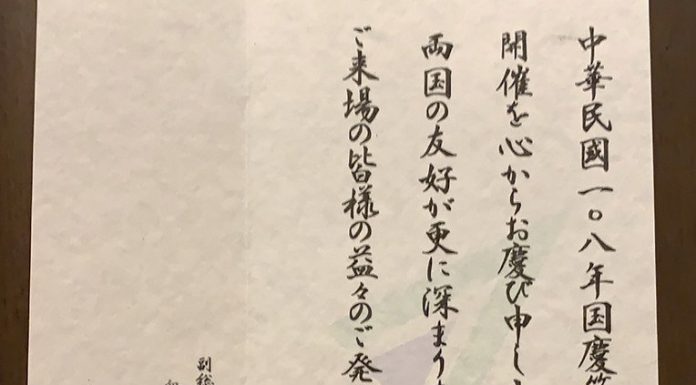 中華民國一〇八年国慶節
開催を心からお慶び申し
両国の友好が更に深まり
ご来場の皆様の益々のご発
副総